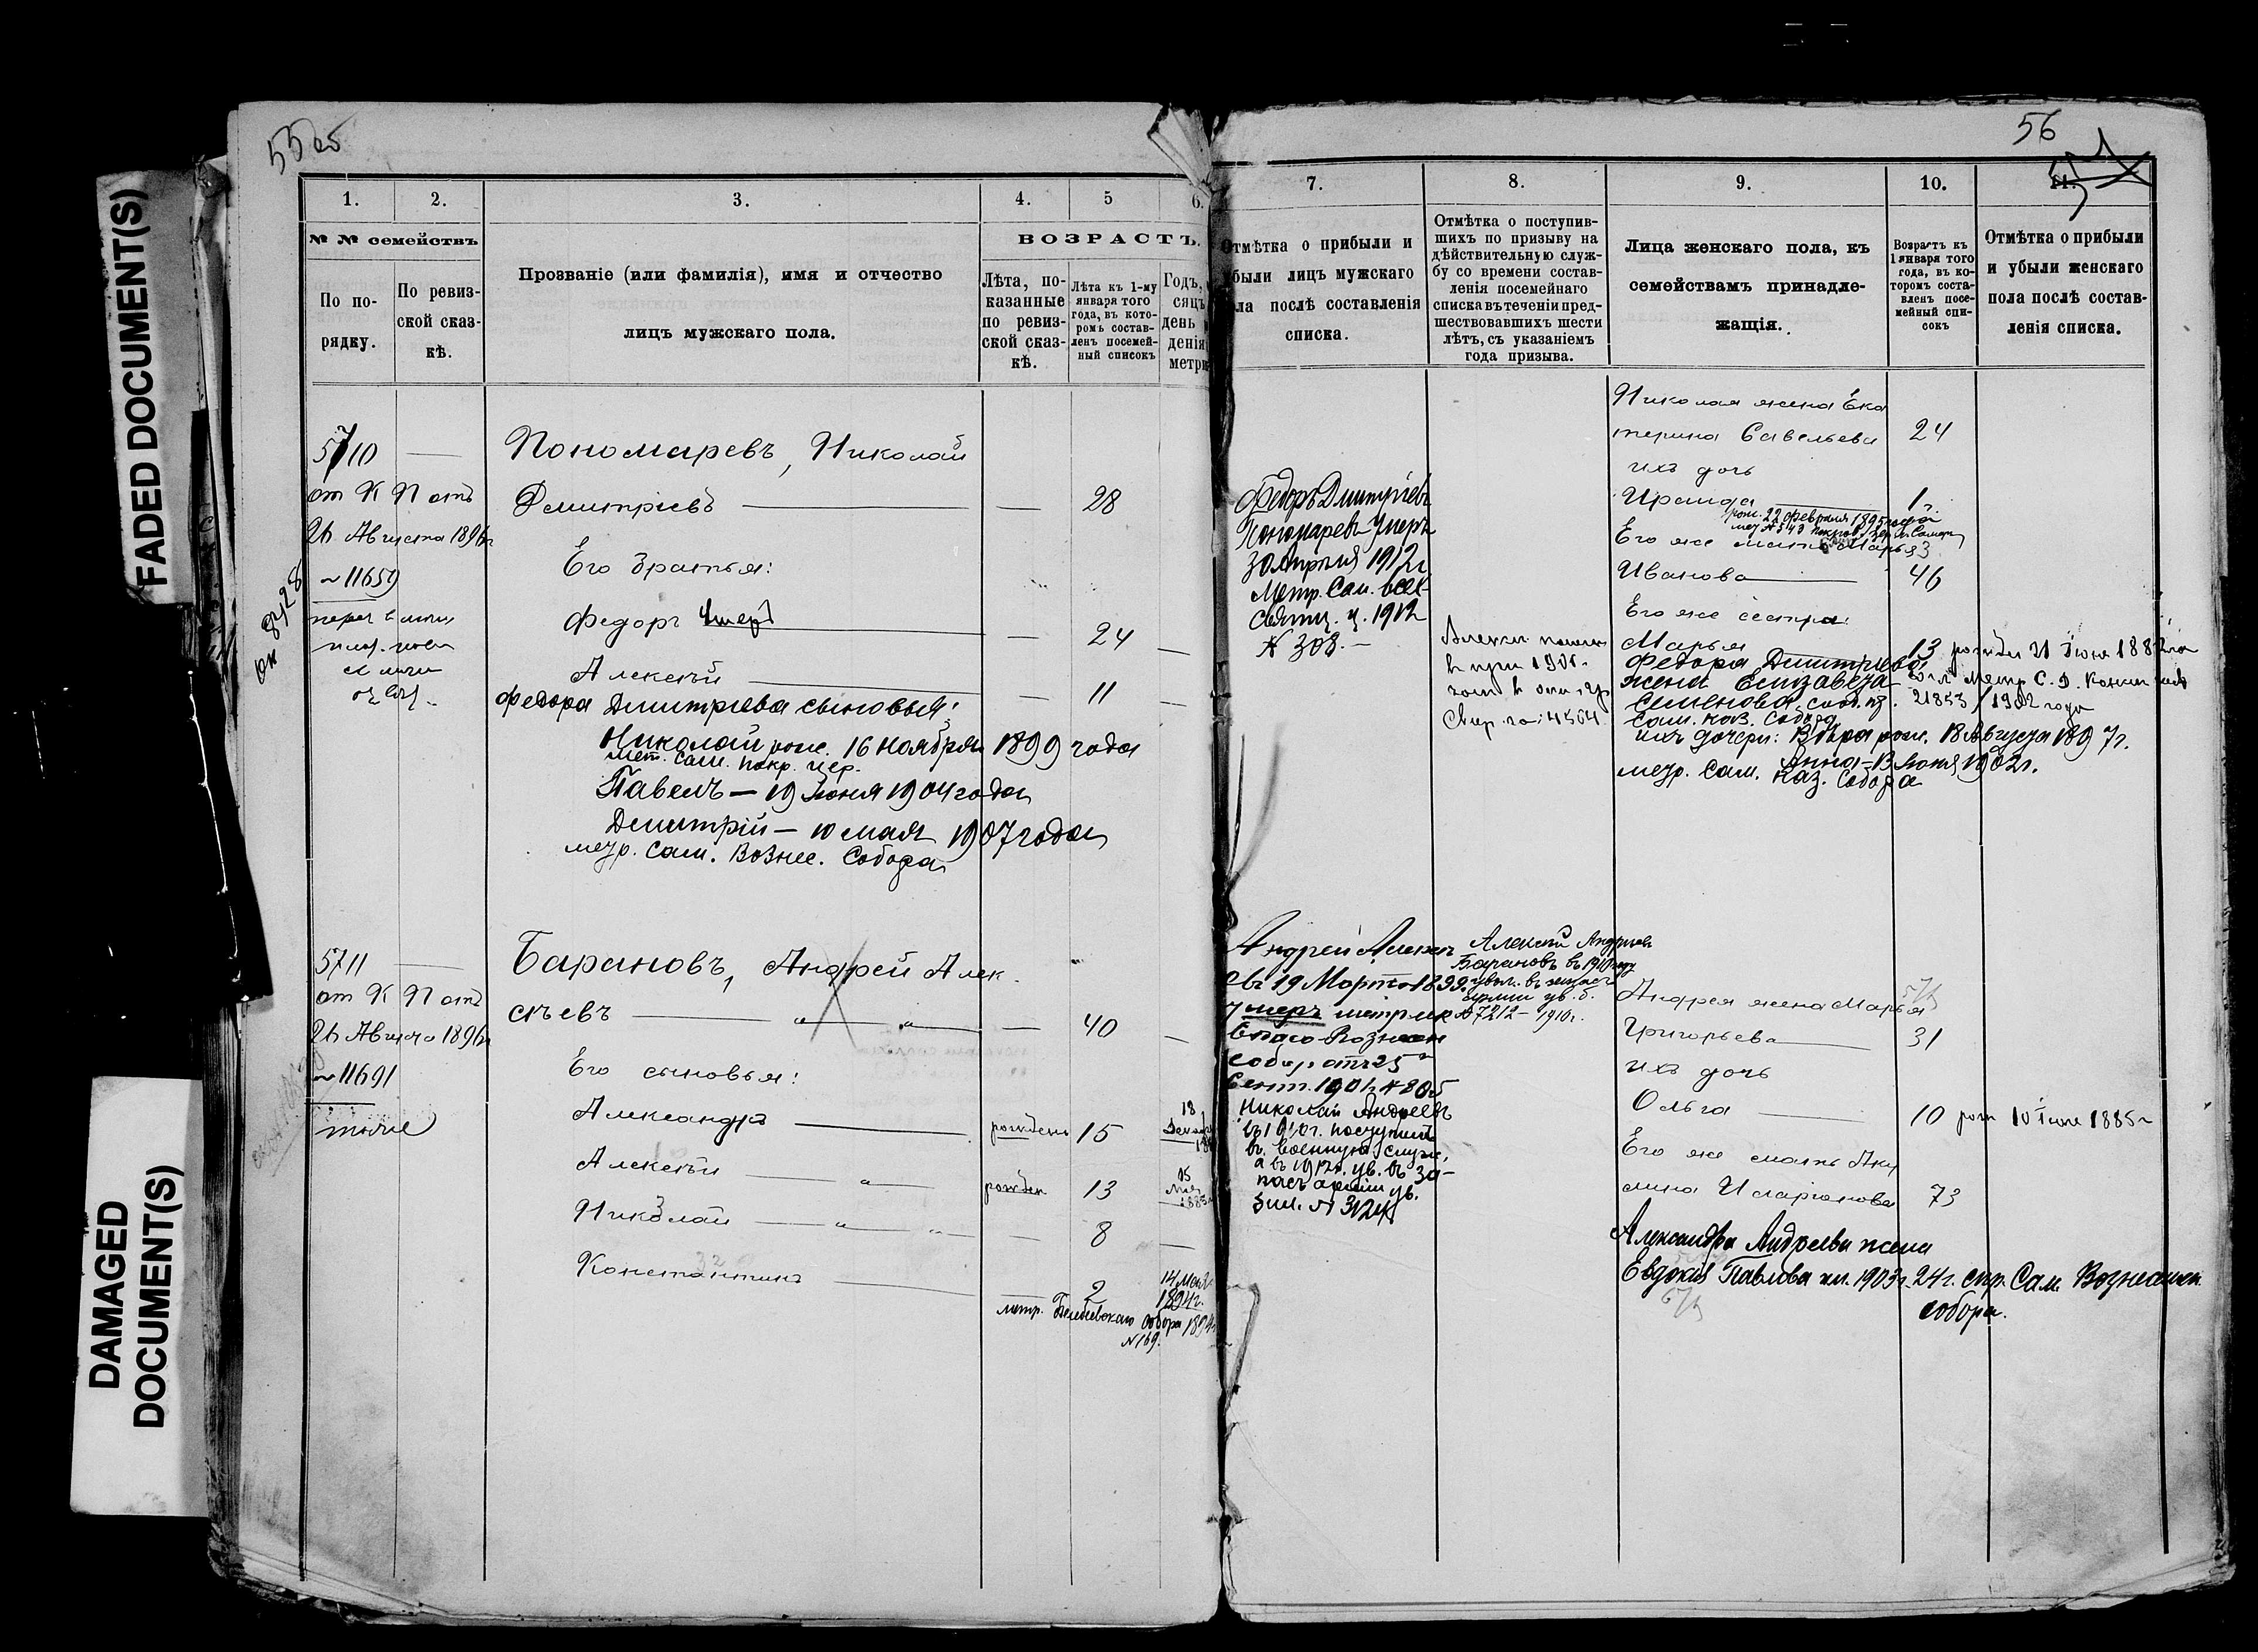 FADED DOCUMENT(S)
DAMAGED
DOCUMENT(S)
55 об
1.
2.
3.
4.
5
6.
№ № семействъ
По по-
рядку.
По ревиз-
ской сказ-
кѣ.
Прозваніе (или фамилія), имя и отчество
лицъ мужскаго пола.
ВОЗРАСТЪ.
Лѣта, по-
казанные
по ревиз-
ской сказ-
кѣ.
Лѣта къ 1-му
января того
года, въ кото-
ромъ состав-
ленъ посемей-
ный списокъ
Годъ,
сяцъ
день
денія
метри
5710
от К П отъ
26 Августа 1896 г
~11659
Пономаревъ, Николай
Дмитріевъ
28
Его братья:
Федоръ Умеръ
24
Алексѣй
11
Федора Дмитріева сыновья:
Николай рож. 16 Ноября 1899 года
мет. Сам. покр. цер.
Павелъ — 19 Іюня 1904 года
Дмитрій — 10 мая 1907 года
метр. Сам. Вознес. Собора
5711
от К П отъ
26 Августа 1896 г
~11691
Барановъ, Андрей Алек
сѣевъ
40
Его сыновья:
Александръ
рожденъ 15
18
Алексѣй
рожден 13
Николай
8
Константинъ
2
14 мая
1894 г.
метр. Белебеевскаго Собора 1894
№ 169.
56
7.
8.
9.
10.
11.
Отмѣтка о прибыли и
убыли лицъ мужскаго
ла послѣ составленія
списка.
Отмѣтка о поступив-
шихъ по призыву на
дѣйствительную служ-
бу со времени состав-
ленія посемейнаго
списка въ теченіи пред-
шествовавшихъ шести
лѣтъ, съ указаніемъ
года призыва.
Лица женскаго пола, къ
семействамъ принадле-
жащія.
Возрастъ къ
1 января того
года, въ ко-
торомъ соста-
вленъ посе-
мейный спи-
сокъ
Отмѣтка о прибыли
и убыли женскаго
пола послѣ состав-
ленія списка.
Федоръ Дмитріевъ
Пономаревъ Умеръ
30 Апрѣля 1912 г
Метр. Сам. всех-
Святц. ц. 1912
№ 308.—
Николая жена Ека
терина Савельева 24
ихъ дочь
Ираида 1 г.
рож. 22 февраля 1895 года
Его же мать Марья
Иванова 46
Его же сестра:
Марья 13 рожден 21 Іюня 1882 го
Федора Дмитріева
жена Елизавета
Семенова
21853 / 1902 года
Сам. каз. Собора
ихъ дочери: Вѣра рож. 18 Августа 1897 г.
Анна — 13 Іюня 1902 г.
метр. Сам. Каз. Собора
Андрей Алексѣ
евъ 19 Марта 1899
умеръ метрик
Спасо Вознесен
Собор. отъ 25
Сент. 1901 г № 805
Николай Андреевъ
въ 1910 г. поступилъ
въ военную служ.
а въ 1912 г. ув. въ за-
пасъ арміи ув.
Алексѣй Андреевъ
Барановъ въ 1910 году
увол. въ запасъ
арміи ув. б.
№ 7212 — 1910 г.
Андрея жена Марья
Григорьева 31
ихъ дочь
Ольга 10 рож 10 Іюля 1885 г
Его же мать Аку
лина Иларіонова 73
Александра Андреева жена
Евдокія Павлова ил. 1903 г. 24 г. Сам. Вознесенск
собора.